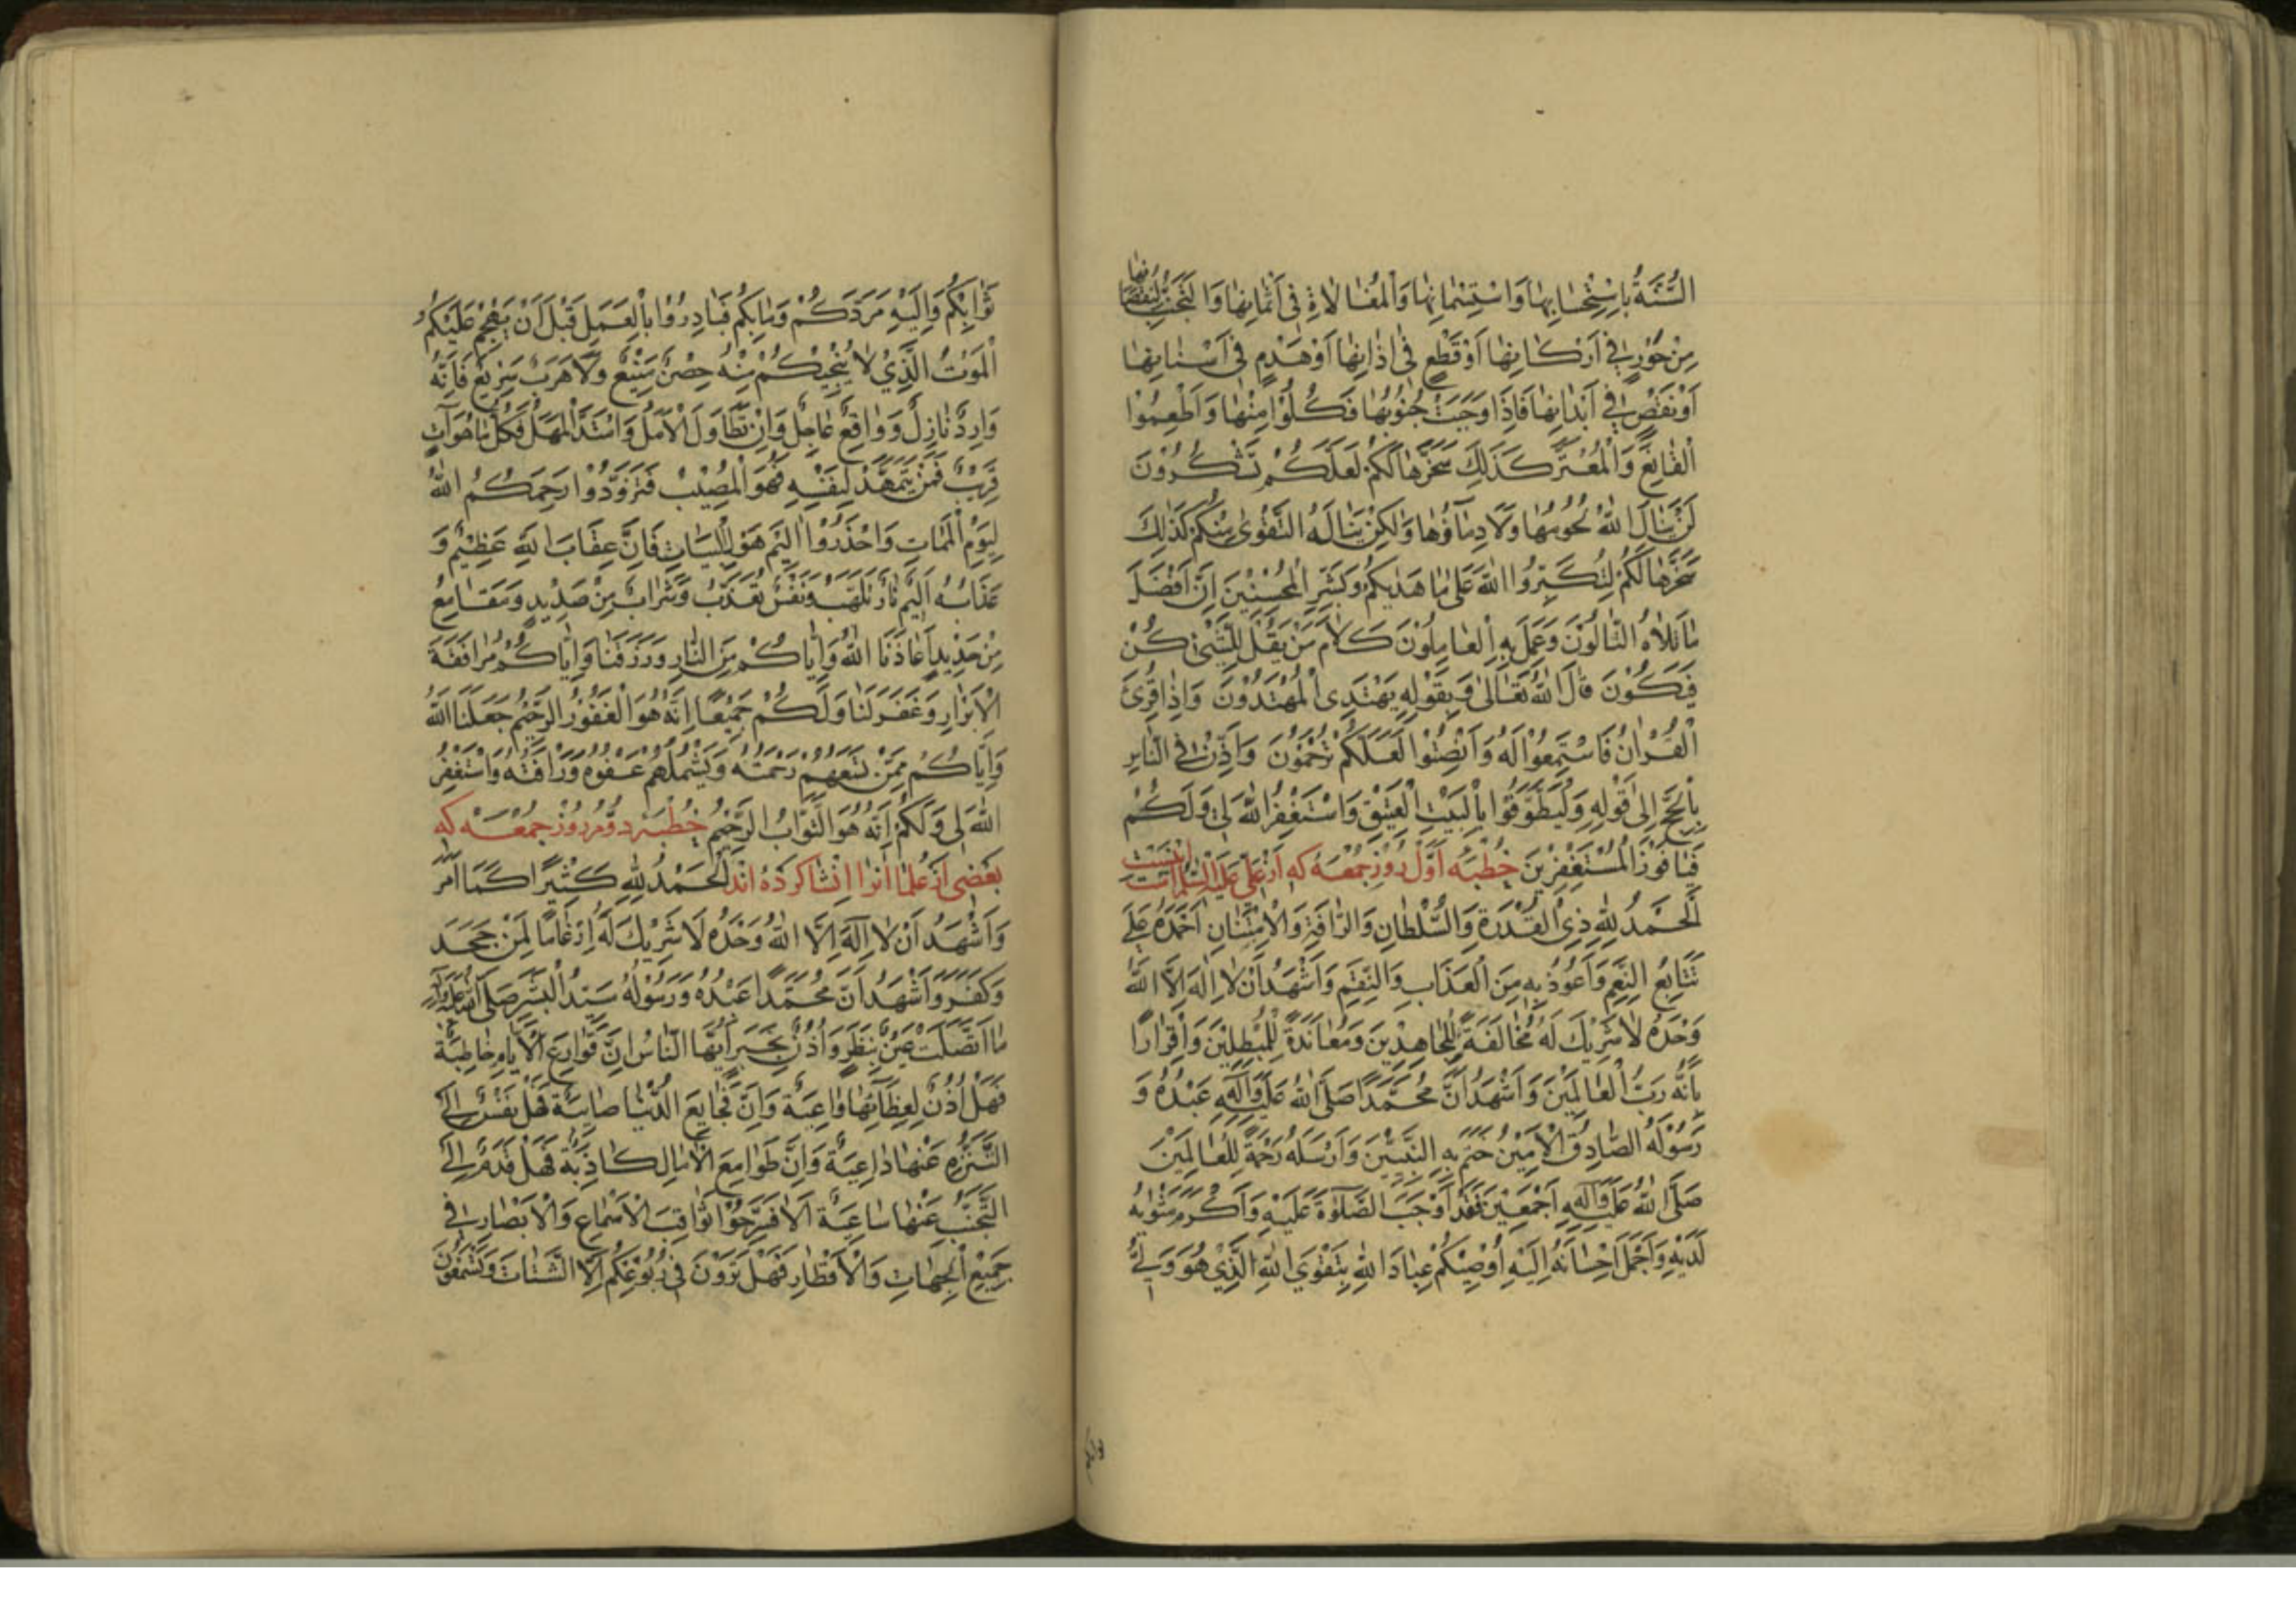 السُّنَّةُ بِاسْتِحْسٰانِهٰا وَاسْتِسْمٰانِهٰا وَالْمُغٰالاٰةِ فى اَثْمٰانِهٰا وَالتَّجَنُّبِ
مِنْ خَوَرٍ فى اَرْكٰانِهٰا اَوْ قَطْعٍ فى اٰذٰانِهٰا اَوْ هَدْمٍ فى اَسْنٰانِهٰا
اَوْ نَقْصٍ فى اَبْدٰانِهٰا فَاِذٰا وَجَبَتْ جُنُوبُهٰا فَكُلُوْا مِنْهٰا وَاَطْعِمُوا
الْقٰانِعَ وَالْمُعْتَرَّ كَذٰلِكَ سَخَّرْهٰا لَكُمْ لَعَلَّكُمْ تَشْكُرُوْنَ
لَنْ يَنٰالَ اللّٰهَ لُحُومُهٰا وَلاٰ دِمٰآؤُهٰا وَلٰكِنْ يَنٰالُهُ التَّقْوٰى مِنْكُمْ كَذٰلِكَ
سَخَّرَهٰا لَكُمْ لِتُكَبِّرُوا اللّٰهَ عَلٰى مٰا هَدٰيكُمْ وَبَشِّرِ الْمُحْسِنِيْنَ اِنَّ اَفْضَلَ
مٰا تَلاٰهُ التّٰالُوْنَ وَعَمِلَ بِهِ الْعٰامِلُوْنَ كَلاٰمُ مَنْ يَقُلْ لِلشَّىْءِ كُنْ
فَيَكُوْنَ قٰالَ اللّٰهُ تَعٰالٰى وَبِقَوْلِهِ يَهْتَدِى الْمُهْتَدُوْنَ وَاِذٰا قُرِئَ
الْقُرْاٰنُ فَاسْتَمِعُوْا لَهُ وَاَنْصِتُوْا لَعَلَّكُمْ تُرْحَمُوْنَ وَاَذِّنْ فى النّٰاسِ
بِالْحَجِّ اِلٰى قَوْلِهِ وَلْيَطَّوَّفُوْا بِالْبَيْتِ الْعَتِيْقِ وَاسْتَغْفِرُ اللّٰهَ لى وَلَكُمْ
فَيٰا فَوْزَ الْمُسْتَغْفِرْيِنَ خُطْبَهٔ اَوَّل رُوْزِ جُمْعَهٔ كه اَزْ عَلى عَلَيْهِ السَّلٰامْ
اَلْحَمْدُ لِلّٰهِ ذِى الْقُدْرَةِ وَالسُّلْطٰانِ وَالرَّأفَةِ وَالْاِمْتِنٰانِ اَحْمَدُهُ عَلٰى
تَتٰابُعِ النِّعَمِ وَاَعُوْذُ بِهِ مِنَ الْعَذٰابِ وَالنِّقَمِ وَاَشْهَدُ اَنْ لاٰ اِلٰهَ اِلاَّ اللّٰهُ
وَحْدَهُ لاٰ شَرِيْكَ لَهُ مُخٰالَفَةً لِلْجٰاحِدِيْنَ وَمُعٰانَدَةً لِلْمُبْطِلِيْنَ وَاِقْرٰارًا
بِاَنَّهُ رَبُّ الْعٰالَمِيْنَ وَاَشْهَدُ اَنَّ مُحَمَّدًا صَلَّى اللّٰهُ عَلَيْهِ وَاٰلِهِ عَبْدُهُ وَ
رَسُوْلُهُ الصّٰادِقُ الْاَمِيْنُ خَتَمَ بِهِ النَّبِيّٖنَ وَاَرْسَلَهُ رَحْمَةً لِلْعٰالَمِيْنَ
صَلَّى اللّٰهُ عَلَيْهِ وَاٰلِهِ اَجْمَعِيْنَ فَقَدْ اَوْجَبَ الصَّلٰوةَ عَلَيْهِ وَاَكْرَمَ مَثْوٰيهُ
لَدَيْهِ وَاَجْمَلَ اِحْسٰانَهُ اِلَيْهِ اُوْصِيْكُمْ عِبٰادَ اللّٰهِ بِتَقْوَى اللّٰهِ الَّذِىْ هُوَ وَلِىُّ
ثَوٰابِكُمْ وَاِلَيْهِ مَرَدُّكُمْ وَمٰابُكُمْ فَبٰادِرُوْا بِالْعَمَلِ قَبْلَ اَنْ يَهْجُمَ عَلَيْكُمُ
الْمَوْتُ الَّذِيْ لاٰ يُنْجِيْكُمْ مِنْهُ حِصْنٌ مَنِيْعٌ وَلاٰ هَرَبٌ سَرِيْعٌ فَاِنَّهُ
وٰارِدٌ نٰازِلٌ وَوٰاقِعٌ عٰاجِلٌ وَاِنْ تَطٰاوَلَ الْاَمَلُ وَامْتَدَّ الْمَهَلُ فَكُلُّ مٰا هُوَ اٰتٍ
قَرِيْبٌ فَمَنْ يُمَهِّدْ لِنَفْسِهِ فَهُوَ الْمُصِيْبُ فَتَزَوَّدُوْا رَحِمَكُمُ اللّٰهُ
لِيَوْمِ الْمَمٰاتِ وَاحْذَرُوْا اَلِيْمَ هَوْلِ الْبَيٰاتِ فَاِنَّ عِقٰابَ اللّٰهِ عَظِيْمٌ وَ
عَذٰابَهُ اَلِيْمٌ نٰارٌ تَلَهَّبُ وَنَفْسٌ تُعَذَّبُ وَشَرٰابٌ مِنْ صَدِيْدٍ وَمَقٰامِعُ
مِنْ حَدِيْدٍ اَعٰاذَنَا اللّٰهُ وَاِيّٰاكُمْ مِنَ النّٰارِ وَرَزَقَنٰا وَاِيّٰاكُمْ مُرٰافَقَةَ
الْاَبْرٰارِ وَغَفَرَ لَنٰا وَلَكُمْ جَمِيْعًا اِنَّهُ هُوَ الْغَفُوْرُ الرَّحِيْمُ جَعَلَنَا اللّٰهُ
وَاِيّٰاكُمْ مِمَّنْ تَسَعُهُمْ رَحْمَتُهُ وَيَشْمَلُهُمْ عَفْوُهُ وَرَاْفَتُهُ وَاَسْتَغْفِرُ
اللّٰهَ لى وَلَكُمْ اِنَّهُ هُوَ التَّوّٰابُ الرَّحِيْمُ خُطْبَهٔ دوُّمِ رُوْزِ جُمْعَهٔ كه
بَعْضى اَزْ عُلَمٰا اٰنرٰا اِنْشٰا كَرْدَهْ اند اَلْحَمْدُ لِلّٰهِ كَثِيْرًا كَمٰا اَمَرَ
وَاَشْهَدُ اَنْ لاٰ اِلٰهَ اِلاَّ اللّٰهُ وَحْدَهُ لاٰ شَرِيْكَ لَهُ اِرْغٰامًا لِمَنْ جَحَدَ
وَكَفَرَ وَاَشْهَدُ اَنَّ مُحَمَّدًا عَبْدُهُ وَرَسُوْلُهُ سَيِّدُ الْبَشَرِ صَلَّى اللّٰهُ عَلَيْهِ وَاٰلِهِ
مٰا اتَّصَلَتْ عَيْنٌ بِنَظَرٍ وَاُذُنٌ بِخَبَرٍ اَيُّهَا النّٰاسُ اِنَّ قَوٰارِعَ الْاَيّٰامِ خٰاطِبَةٌ
فَهَلْ اُذُنٌ لِعِظٰاتِهٰا وٰاعِيَةٌ وَاِنَّ فَجٰايِعَ الدُّنْيٰا صٰايِبَةٌ فَهَلْ نَفْسٌ اِلَى
التَّنَزُّهِ عَنْهٰا دٰاعِيَةٌ وَاِنَّ طَوٰامِعَ الْاٰمٰالِ كٰاذِبَةٌ فَهَلْ قَدَمٌ اِلَى
التَّجَنُّبِ عَنْهٰا سٰاعِيَةٌ اَلاٰ فَسَرِّحُوْا ثَوٰاقِبَ الْاَسْمٰاعِ وَالْاَبْصٰارِ فى
جَمِيْعِ الْجِهٰاتِ وَالْاَقْطٰارِ فَهَلْ تَرَوْنَ فى رُبُوْعِكُمْ اِلاَّ الشَّتٰاتَ وَتَسْمَعُوْنَ